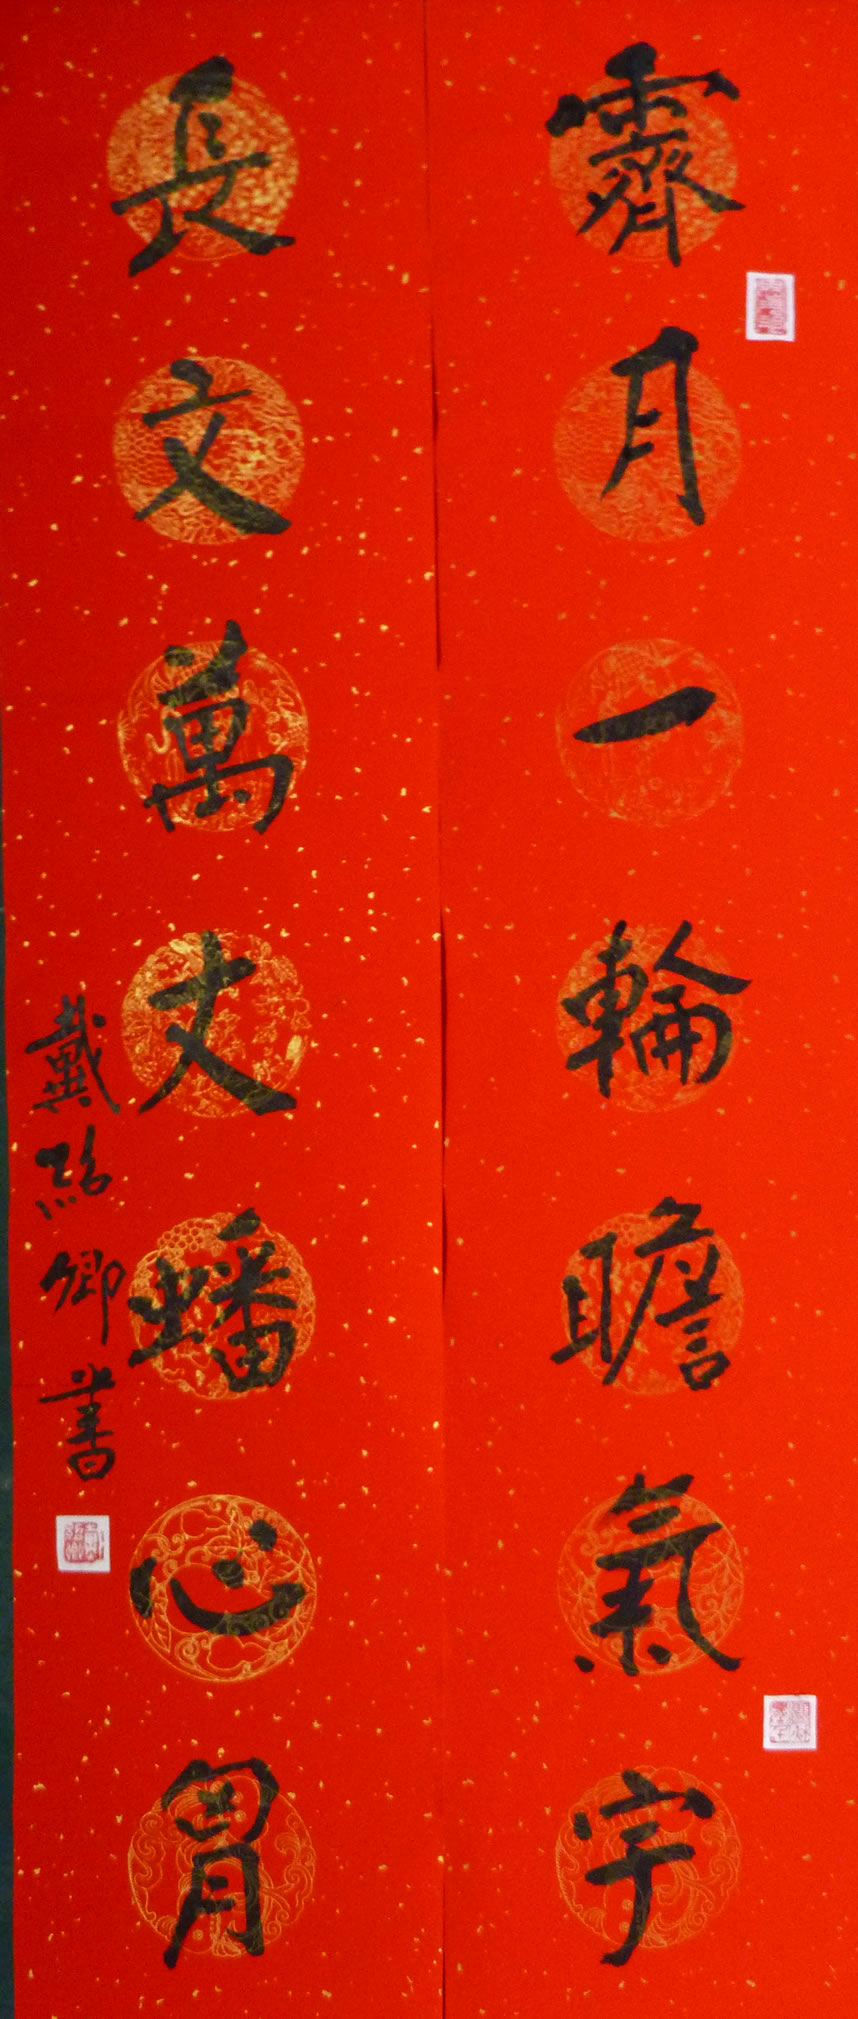 霽月一輪瞻氣宇
長文萬丈蟠心胷
戴 卿書